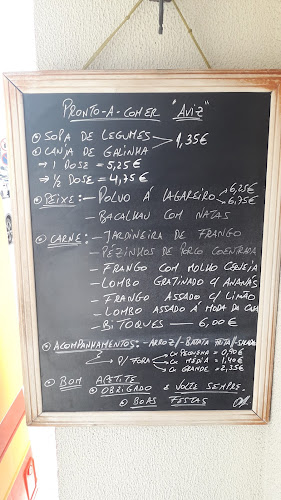 PRONTO-A-COMER "AVIZ"
SOPA DE LEGUMES 1,35€
CANJA DE GALINHA
→ 1 DOSE = 5,25€
→ ½ DOSE = 4,75€
PEIXE: - POLVO Á LAGAREIRO 6,25€
6,75€
- BACALHAU COM NATAS
CARNE: - JARDINEIRA DE FRANGO
- PÉZINHOS DE PORCO COENTRADA
- FRANGO COM MOLHO CERVEJA
- LOMBO GRATINADO C/ ANANÁS
- FRANGO ASSADO C/ LIMÃO
- LOMBO ASSADO Á MODA DA CASA
- BITOQUES — 6,00€
ACOMPANHAMENTOS: - ARROZ/- BATATA FRITA/- SALADA
P/ FORA CX PEQUENA = 0,90€
CX MÉDIA = 1,40€
CX GRANDE = 2,35€
BOM APETITE
OBRIGADO E VOLTE SEMPRE.
BOAS FESTAS